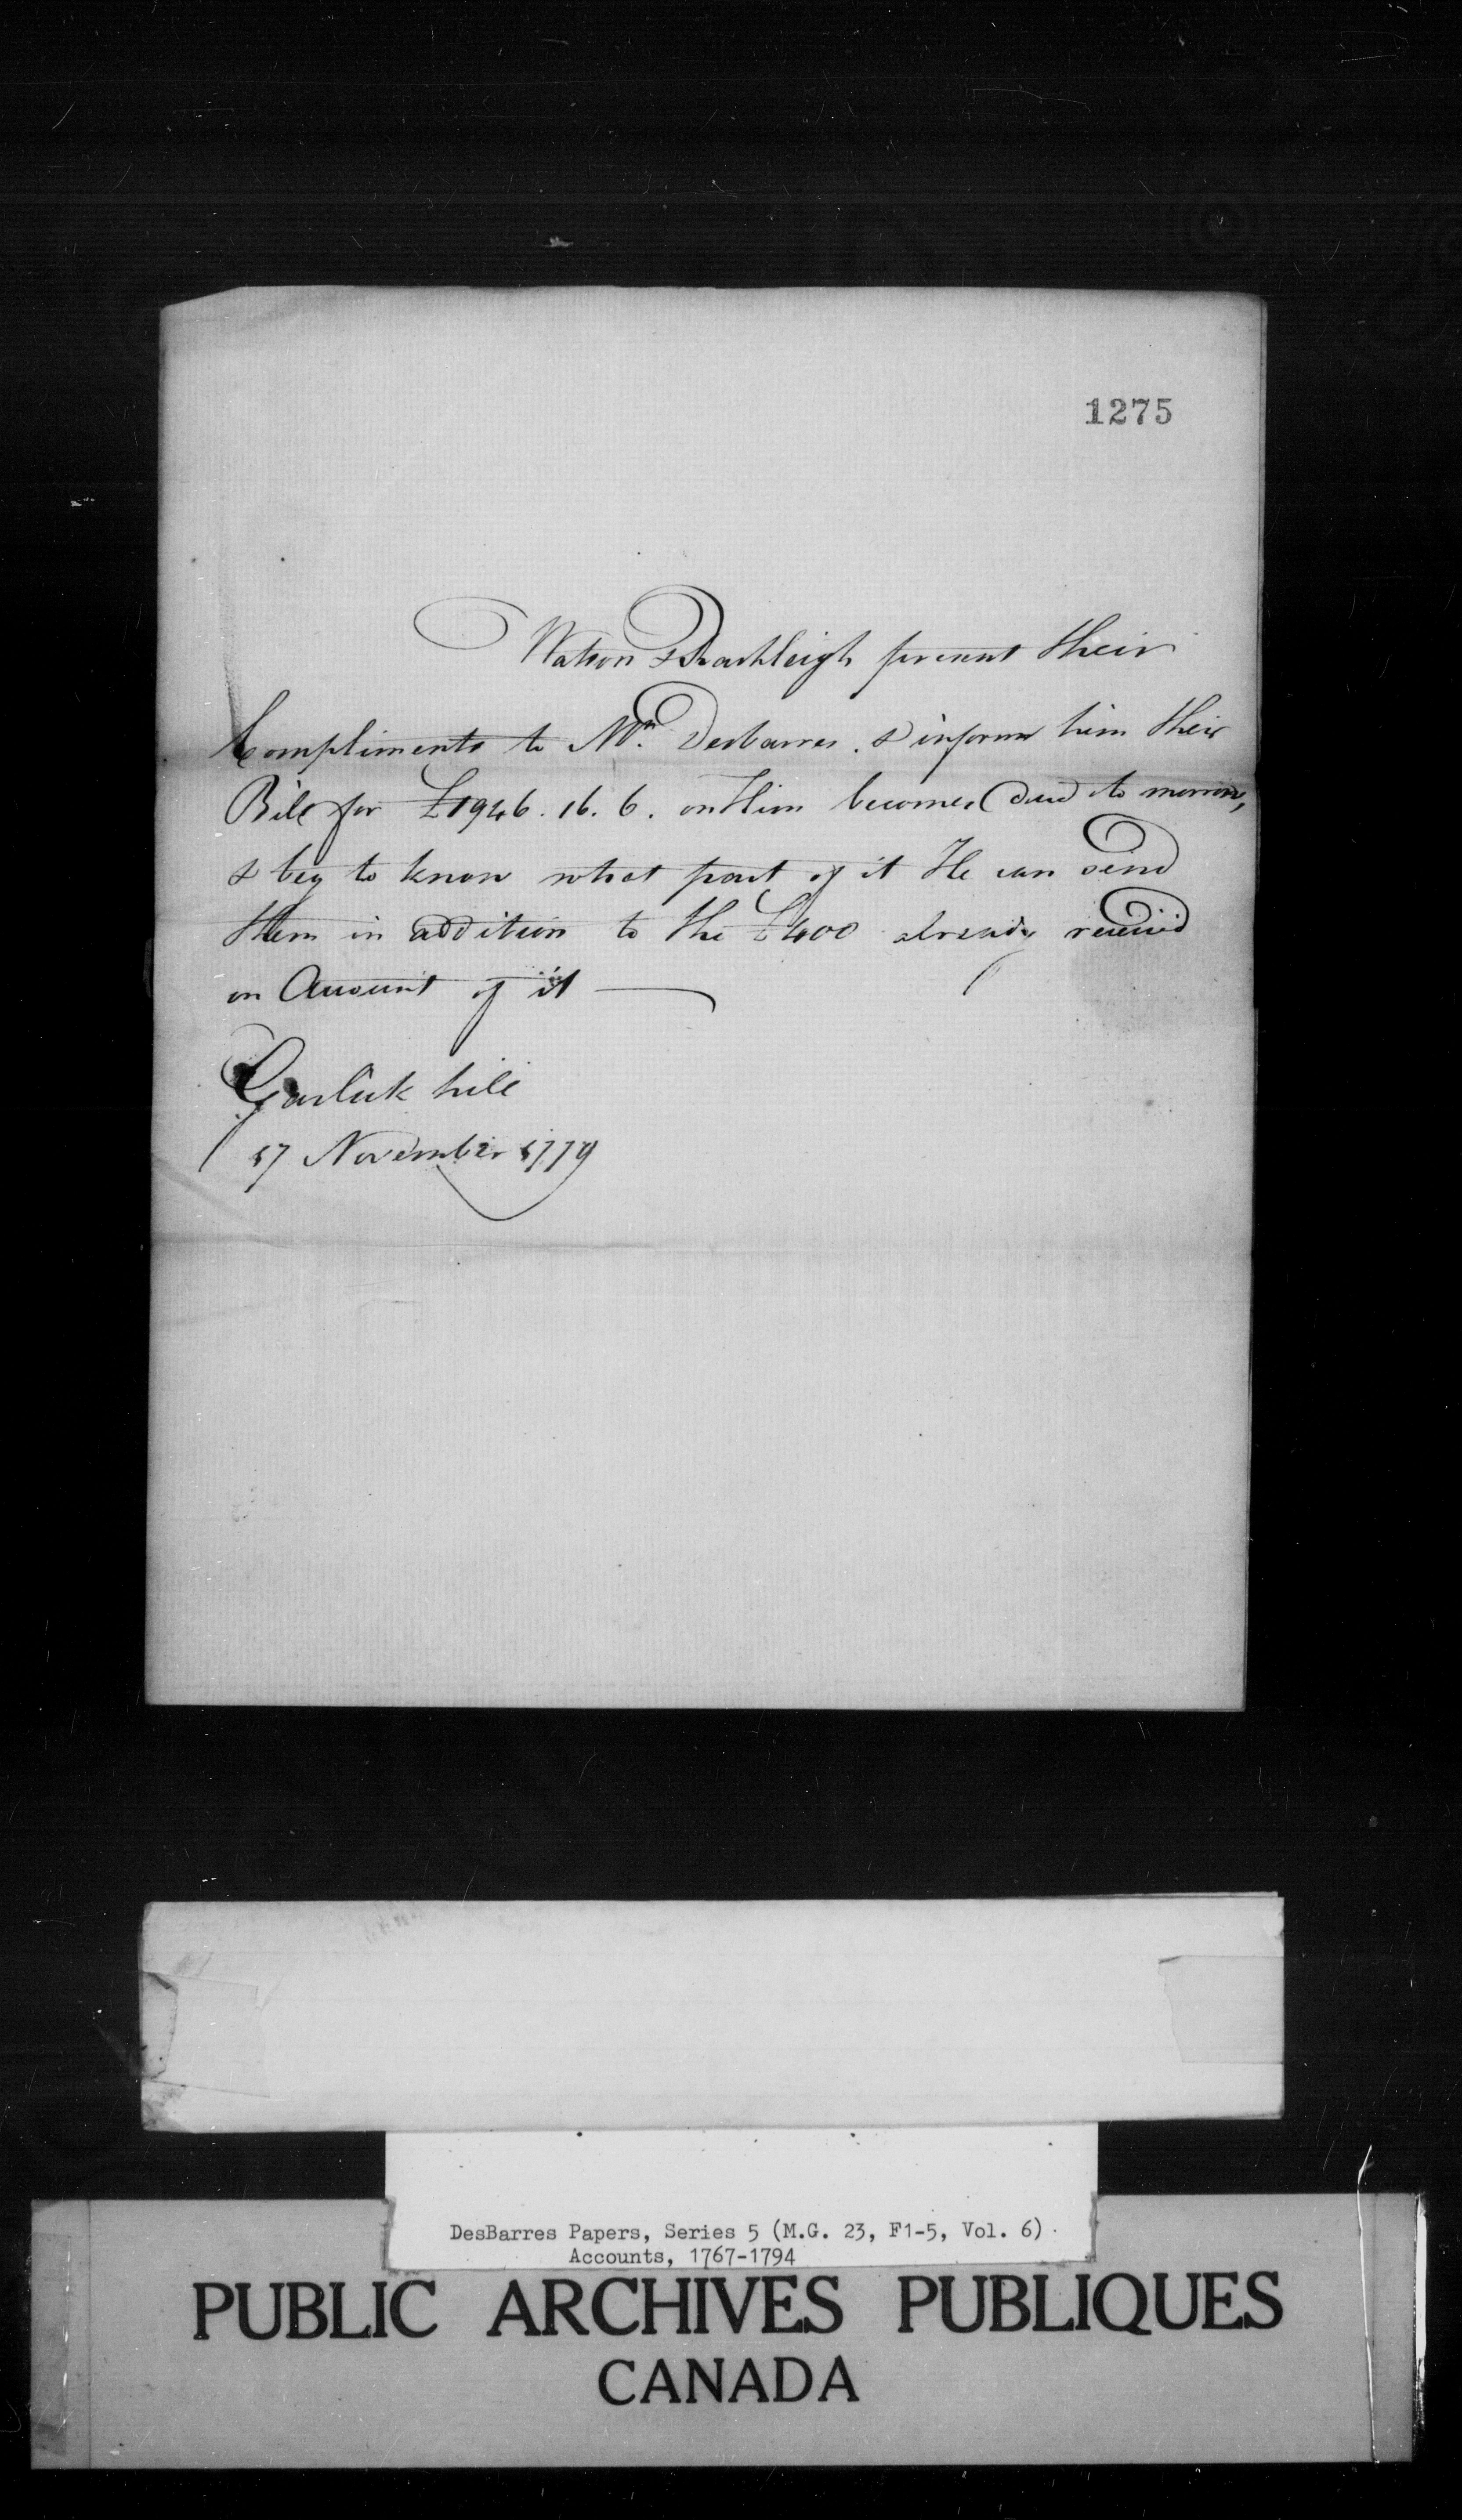 1275
Watson & Rashleigh present their
Compliments to Mr. Desbarres. & inform him their
Bill for £1946. 16. 6. on Him becomes due to morrow,
& beg to know what part of it He can send
them in addition to the £400 already received
on Account of it
Garlick hill
17 November 1779
DesBarres Papers, Series 5 (M.G. 23, F1-5, Vol. 6)
Accounts, 1767-1794
PUBLIC ARCHIVES PUBLIQUES
CANADA